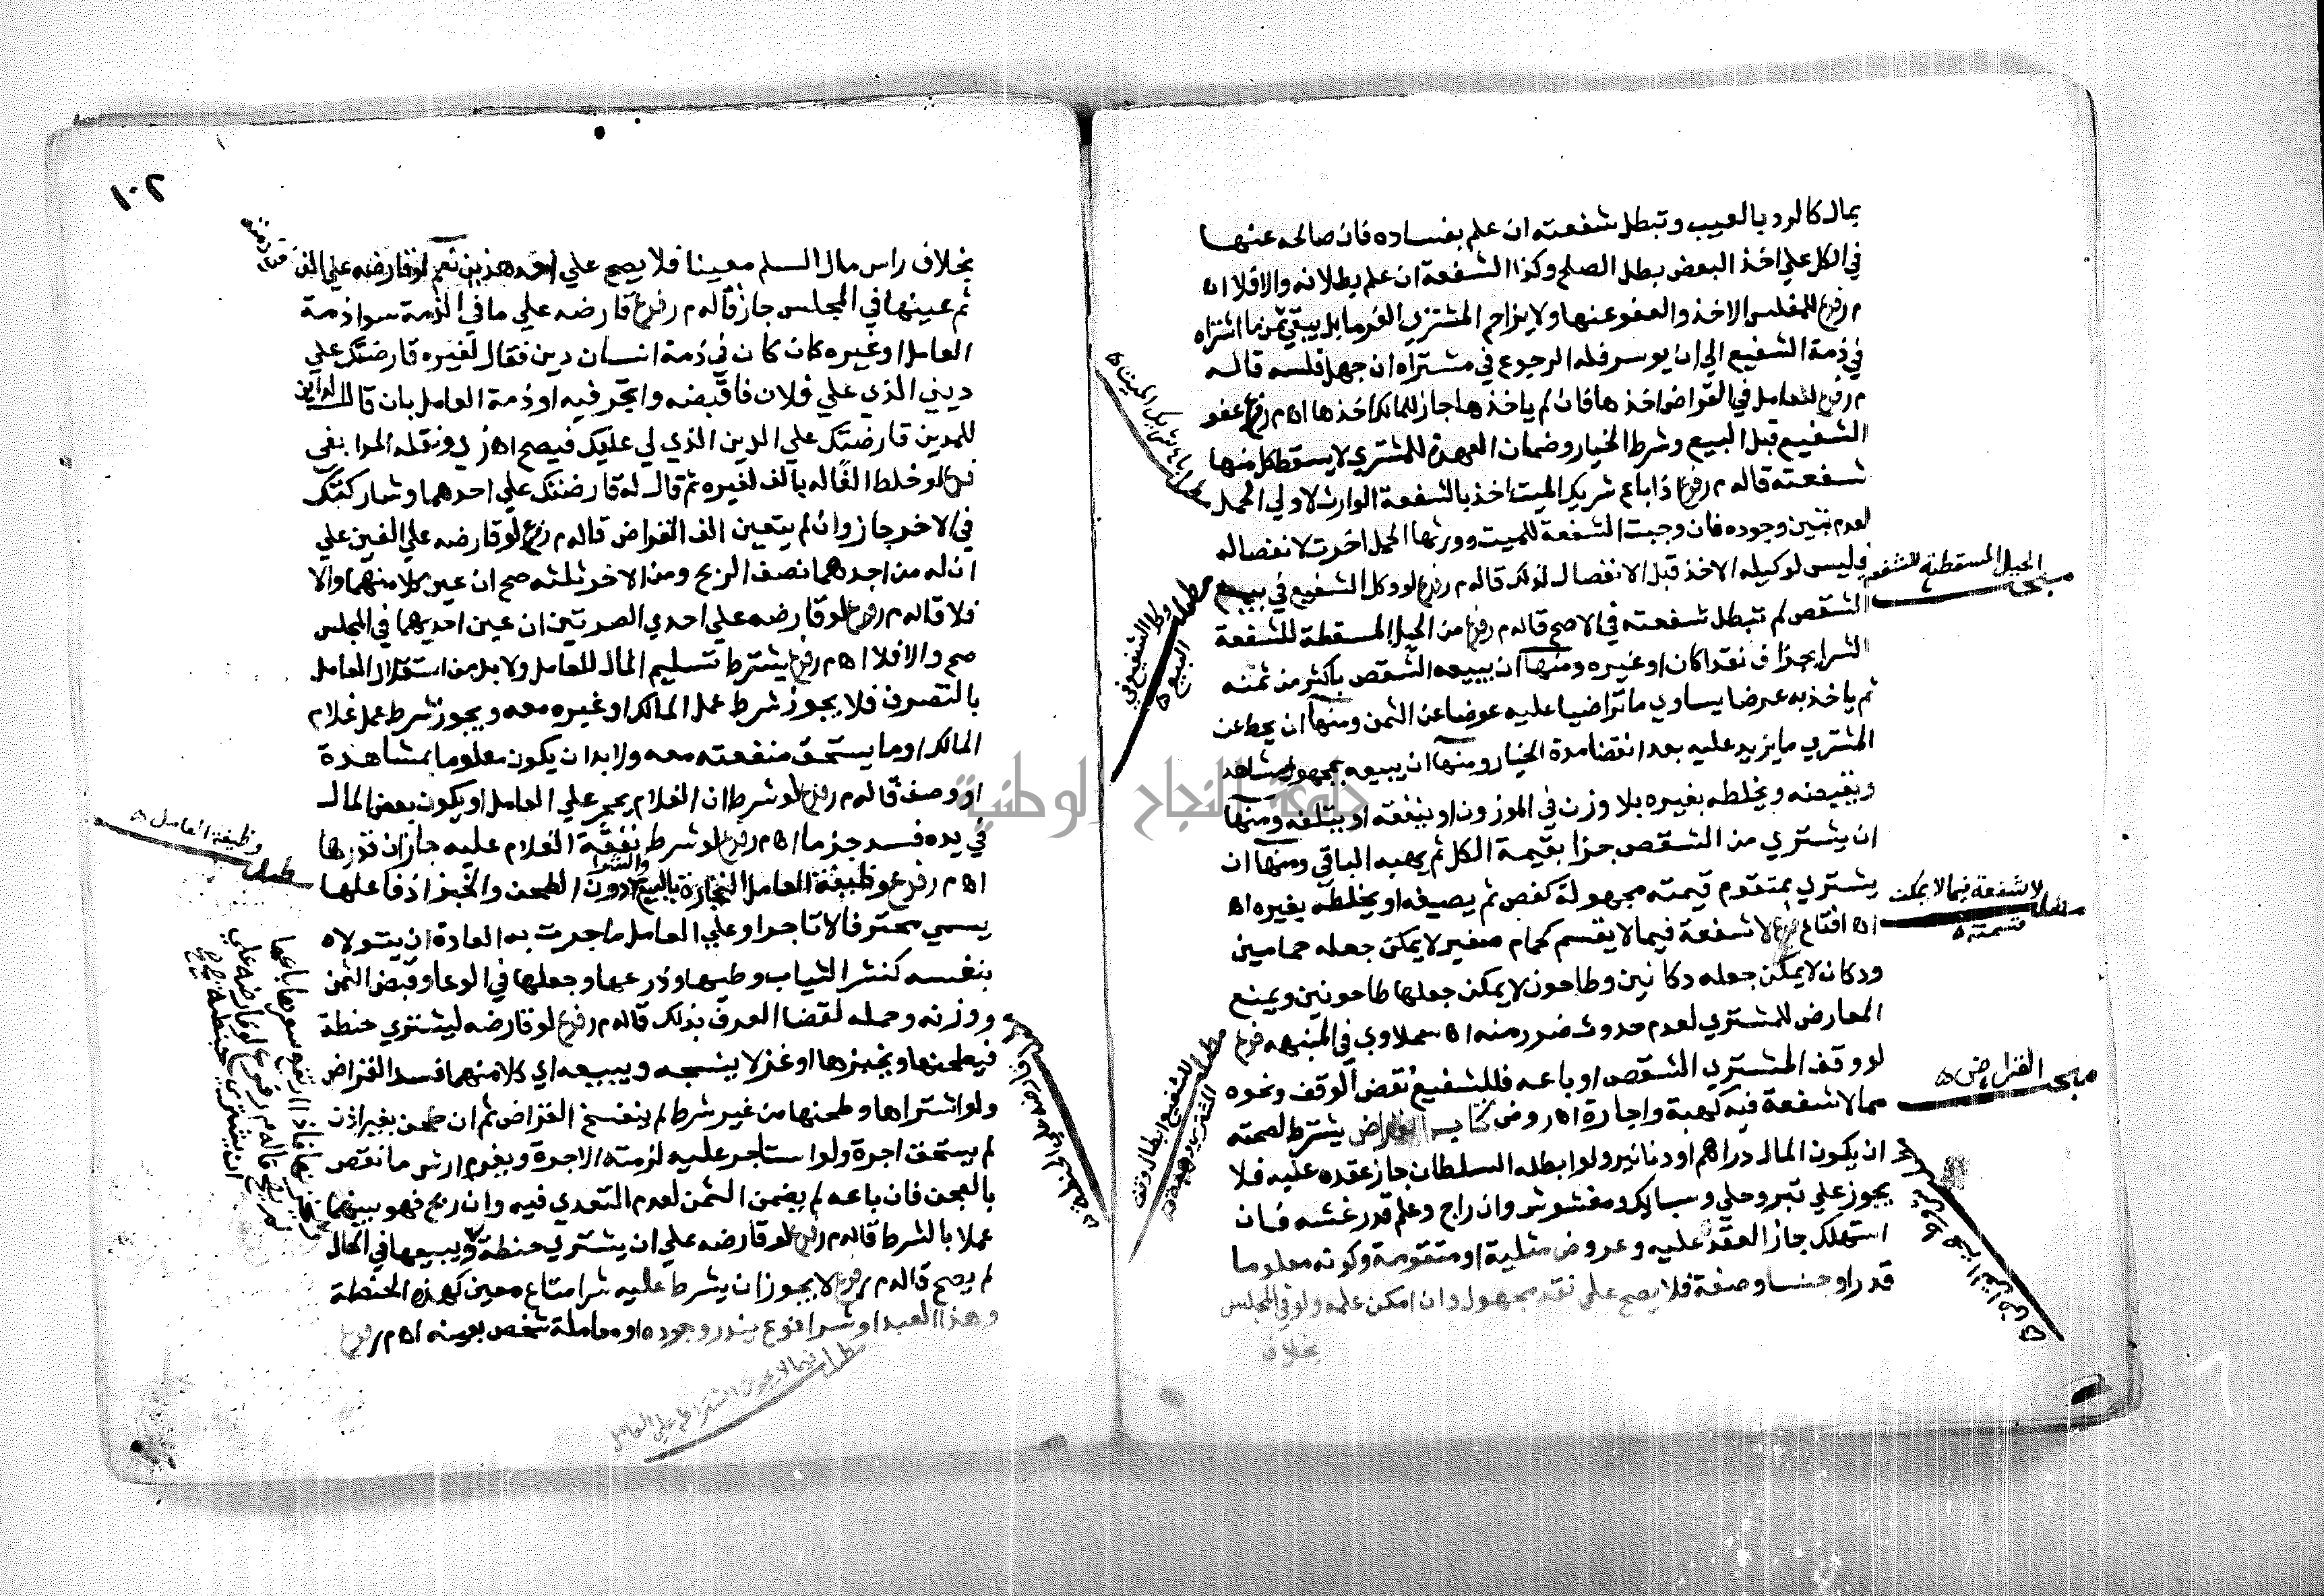 بمال كالرد بالعيب وتبطل شفعته ان علم بفساده فان صالحه عنها
في الكل علي اخذ البعض بطل الصلح وكذا الشفعة ان علم بطلانه والافلا اه
م ر فرع للمفلس الاخذ والعفو عنها ولا يزاحم المشتري الغرما بل يبقي ثمن ما اشتراه
في ذمة الشفيع الي ان يوسر فله الرجوع في مشتراه ان جهل فلسه قاله
م ر فرع للعامل في القراض اخذها فان لم ياخذها جاز للمالك اخذها اه م ر فرع عفو
الشفيع قبل البيع وشرط الخيار وضمان العهدة للمشتري لا يسقط كل منها
شفعته قاله م ر فرع اذا باع شريك الميت اخذ بالشفعة الوارث لا ولي الحمل
لعدم تيقن وجوده فان وجبت الشفعة للميت وورثها الحمل اخرت لانفصاله
فليس لوكيله الاخذ قبل الانفصال لذلك قاله م ر فرع لو وكل الشفيع في بيع
الشقص لم تبطل شفعته في الاصح قاله م ر فرع من الحيل المسقطة للشفعة
الشرا بجزاف نقدا كان او غيره ومنها ان يبيعه الشقص باكثر من ثمنه
ثم ياخذ به عرضا يساوي ما تراضيا عليه عوضا عن الثمن ومنها ان يحط عن
المشتري ما يزيد عليه بعد انقضا مدة الخيار ومنها ان يبيعه بمجهول مشاهد
ويقبضه ويخلطه بغيره بلا وزن في الموزون او ينفقه او يتلفه ومنها
ان يشتري من الشقص جزا بقيمة الكل ثم يهبه الباقي ومنها ان
يشتري بمتقوم قيمته مجهولة كفص ثم يضيعه او يخلطه بغيره اه
فرع لا شفعة فيما لا يقسم كحمام صغير لا يمكن جعله حمامين
ودكان لا يمكن جعله دكانين وطاحون لا يمكن جعلها طاحونين ويمنع
المعارض للمشتري لعدم حدوث ضرر منه اه سملاوي في المنبهه فرع
لو وقف المشتري الشقص او باعه فللشفيع نقض الوقف ونحوه
مما لا شفعة فيه كهبة واجارة اه روض كتاب القراض يشترط لصحته
ان يكون المال دراهم او دنانير ولو ابطله السلطان جاز عقده عليه فلا
يجوز علي تبر وحلي وسبايك ومغشوش وان راج وعلم قدر غشه فان
استهلك جاز العقد عليه وعروض مثلية او متقومة وكونه معلوما
قدرا وجنسا وصفة فلا يصح علي نقد مجهول وان امكن علمه ولو في المجلس
بخلاف
الحيل المسقطة للشفعة
مبحث
لا شفعة فيما لا يمكن
قسمته
مبحث القراض
مطلب وكل الشفيع في
البيع
مطلب للشفيع ابطال وقف
١٠٢
بخلاف راس مال السلم معينا فلا يصح علي احد هذين نعم لو قارضه علي الف
ثم عينها في المجلس جاز قاله م ر فرع قارضه علي ما في الذمة سوا ذمة
العامل او غيره كان كان في ذمة انسان دين فقال لغيره قارضتك علي
ديني الذي علي فلان فاقبضه واتجر فيه او ذمة العامل بان قال الداين
للمدين قارضتك علي الدين الذي لي عليك فيصح اه زي ونقله المدابغي
فرع لو خلط الفا له بالف لغيره ثم قال له قارضتك علي احدهما وشاركتك
في الاخر جاز وان لم يتعين الف القراض قاله م ر فرع لو قارضه علي الفين علي
ان له من احدهما نصف الربح ومن الاخر ثلثه صح ان عين كلا منهما والا
فلا قاله م ر فرع لو قارضه علي احدي الصرتين ان عين احديهما في المجلس
صح والا فلا اه م ر فرع يشترط تسليم المال للعامل ولا بد من استقلال العامل
بالتصرف فلا يجوز شرط عمل المالك او غيره معه ويجوز شرط عمل غلام
المالك او ما يستحق منفعته معه ولا بد ان يكون معلوما بمشاهدة
او وصف قاله م ر فرع لو شرط ان الغلام يحجر علي العامل او يكون بعض المال
في يده فسد جزما اه م ر فرع لو شرط نفقة الغلام عليه جاز ان قدرها
اه م ر فرع وظيفة العامل التجارة بالبيع والشرا دون الطحن والخبز اذ فاعلها
يسمي محترفا لا تاجرا وعلي العامل ما جرت به العادة ان يتولاه
بنفسه كنشر الثياب وطيها وذرعها وجعلها في الوعا وقبض الثمن
ووزنه وحمله لقضا العرف بذلك قاله م ر فرع لو قارضه ليشتري حنطة
فيطحنها ويخبزها او غزلا ينسجه ويبيعه اي كلا منهما فسد القراض
ولو اشتراها وطحنها من غير شرط لم ينفسخ القراض ثم ان طحن بغير اذن
لم يستحق اجرة ولو استاجر عليه لزمته الاجرة ويغرم ارش ما نقص
بالعجن فان باعه لم يضمن الثمن لعدم التعدي فيه وان ربح فهو بينهما
عملا بالشرط قاله م ر فرع لو قارضه علي ان يشتري حنطة ويبيعها في الحال
لم يصح قاله م ر فرع لا يجوز ان يشرط عليه شرا متاع معين كهذه الحنطة
وهذا العبد او شرا نوع يندر وجوده او معاملة شخص بعينه اه م ر فرع
وظيفة العامل
مطلب
مطلب فيما لا يجوز اشتراطه علي العامل
جامعة النجاح الوطنية